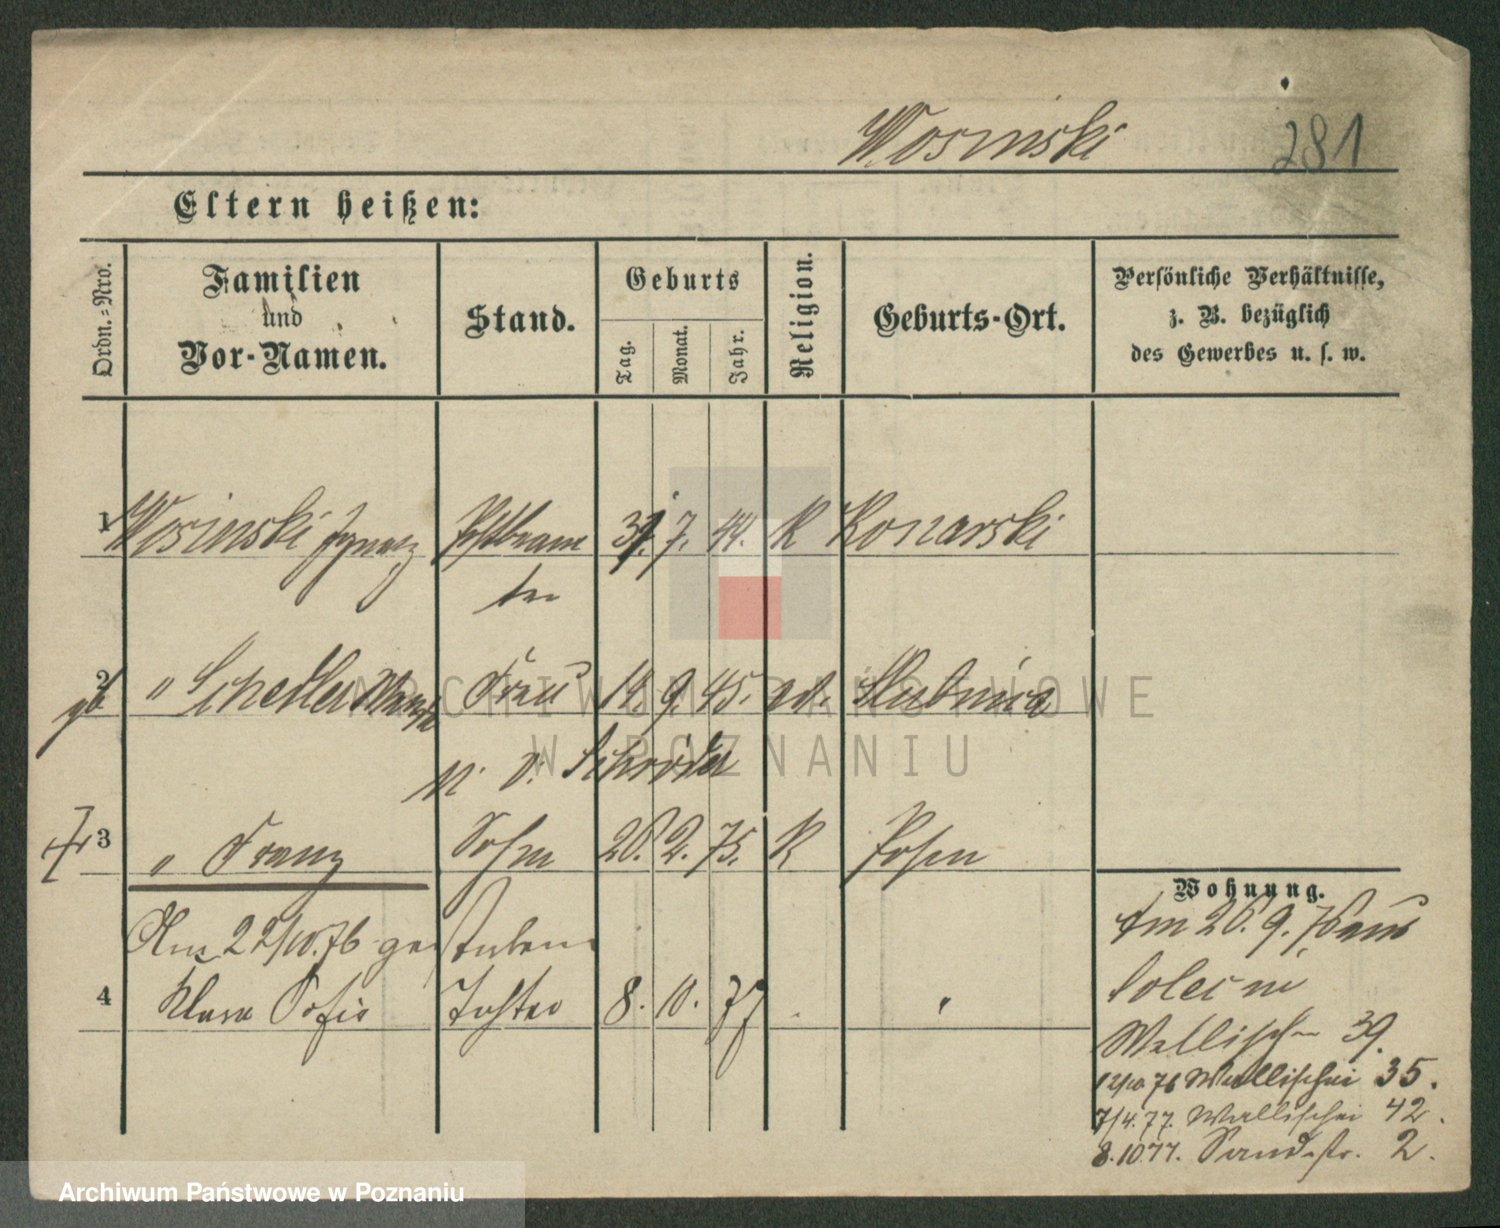 Wosinski 281
Eltern heißen:
Ordn.-Nro.
Familien
und
Vor-Namen.
Stand.
Geburts
Tag.
Monat.
Jahr.
Religion.
Geburts-Ort.
Persönliche Verhältnisse,
z. B. bezüglich
des Gewerbes u. s. w.
1 Wosinski Ignatz Postbeam 31. 7. 44. K Konarski
ten
2 " Schedler Frau 14. 9. 45. ev.
gb
n. d. Schröder
3 " Franz Sohn 26. 2. 75. K Posen
Am 22/10.76 gestorben
4 Klara Sofie Tochter 8. 10. 77 "
Wohnung.
Am 26. 9. 76 aus
Wallischei 39.
12/10 76 Wallischei 35.
7/4. 77. Wallischei 42.
8.10 77. Sandstr. 2.
ARCHIWUM PAŃSTWOWE
W POZNANIU
Archiwum Państwowe w Poznaniu